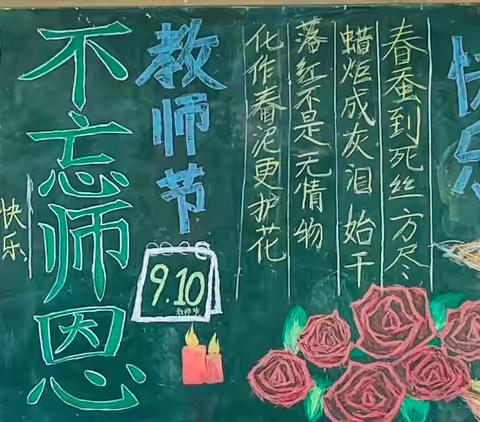 快乐
不忘师恩
教师节
9.10
教师节
春蚕到死丝方尽
蜡炬成灰泪始干
落红不是无情物
化作春泥更护花
快乐